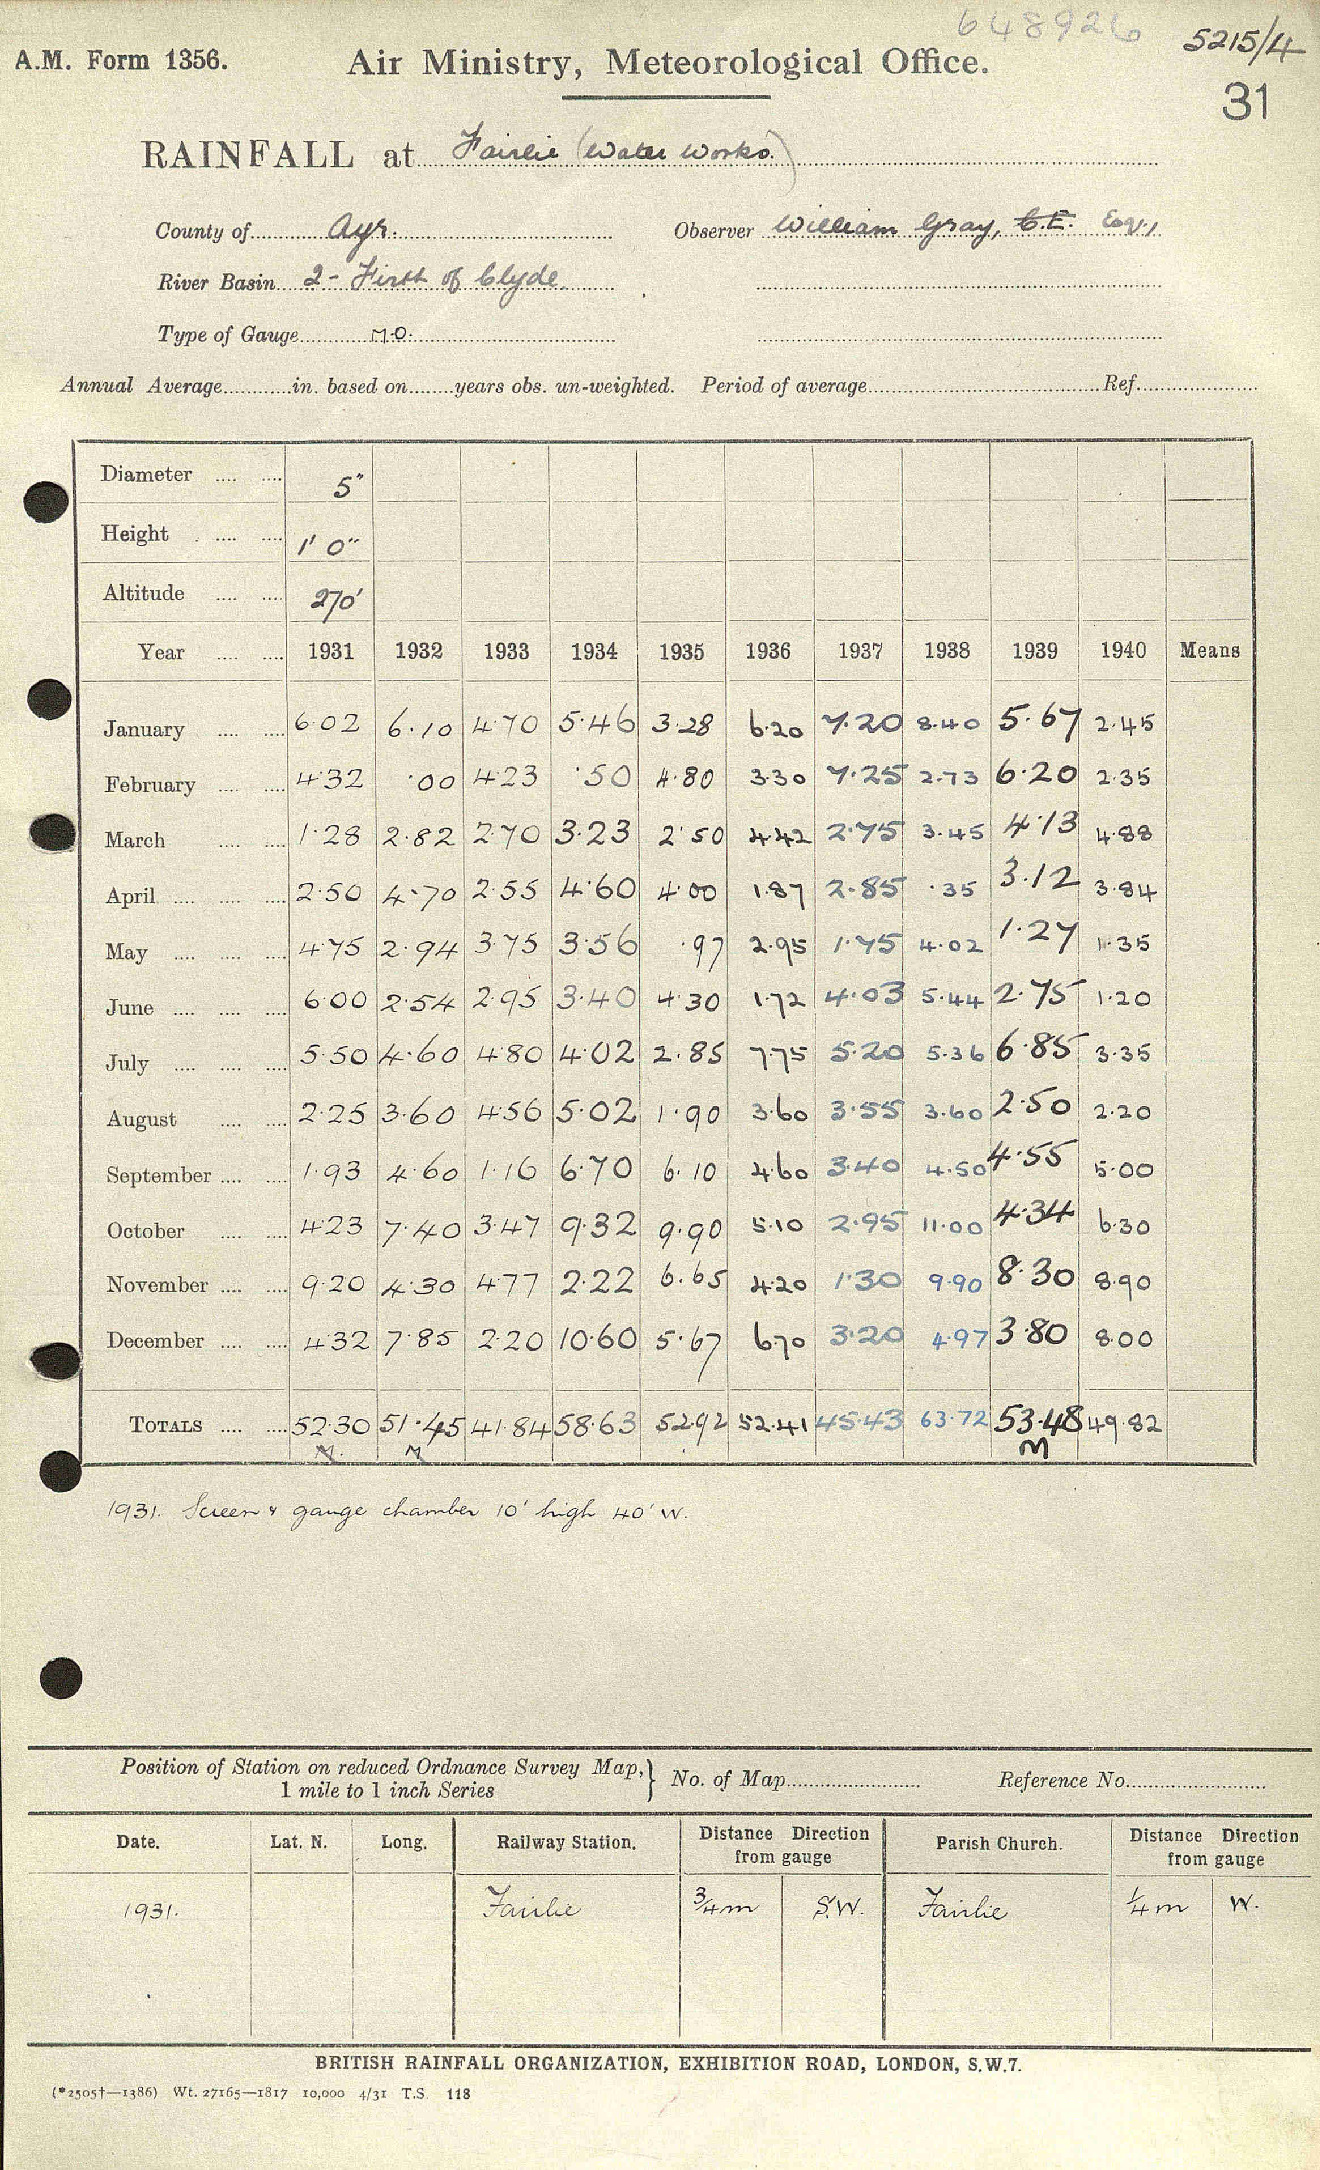 648926
5215/4
A.M. Form 1356. Air Ministry, Meteorological Office.
31
RAINFALL at Fairlie (Water Works.)
County of Ayr. Observer William Gray, C.E. Esq.,
River Basin 2 - Firth of Clyde.
Type of Gauge M.O.
Annual Average in. based on years obs. un-weighted. Period of average Ref.
Diameter 5"
Height 1' 0"
Altitude 270'
Year 1931 1932 1933 1934 1935 1936 1937 1938 1939 1940 Means
January 6.02 6.10 4.70 5.46 3.28 6.20 7.20 8.40 5.67 2.45
February 4.32 .00 4.23 .50 4.80 3.30 7.25 2.73 6.20 2.35
March 1.28 2.82 2.70 3.23 2.50 4.42 2.75 3.45 4.13 4.88
April 2.50 4.70 2.55 4.60 4.00 1.87 2.85 .35 3.12 3.84
May 4.75 2.94 3.75 3.56 .97 2.95 1.75 4.02 1.27 1.35
June 6.00 2.54 2.95 3.40 4.30 1.72 4.03 5.44 2.75 1.20
July 5.50 4.60 4.80 4.02 2.85 7.75 5.20 5.36 6.85 3.35
August 2.25 3.60 4.56 5.02 1.90 3.60 3.55 3.60 2.50 2.20
September 1.93 4.60 1.16 6.70 6.10 4.60 3.40 4.50 4.55 5.00
October 4.23 7.40 3.47 9.32 9.90 5.10 2.95 11.00 4.34 6.30
November 9.20 4.30 4.77 2.22 6.65 4.20 1.30 9.90 8.30 8.90
December 4.32 7.85 2.20 10.60 5.67 6.70 3.20 4.97 3.80 8.00
TOTALS 52.30 51.45 41.84 58.63 52.92 52.41 45.43 63.72 53.48 49.82
M. M M
1931. Screen & gauge chamber 10' high 40' W.
Position of Station on reduced Ordnance Survey Map, 1 mile to 1 inch Series } No. of Map Reference No.
Date. Lat. N. Long. Railway Station. Distance Direction from gauge Parish Church. Distance Direction from gauge
1931. Fairlie 3/4 m S.W. Fairlie 1/4 m W.
BRITISH RAINFALL ORGANIZATION, EXHIBITION ROAD, LONDON, S.W.7.
(*2505†—1386) Wt. 27165—1817 10,000 4/31 T.S. 118